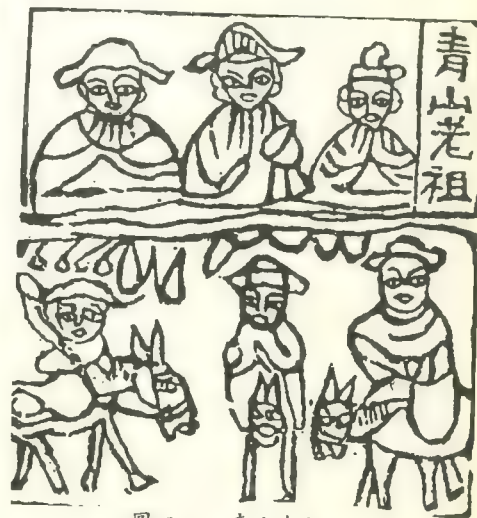 青山老祖
圖